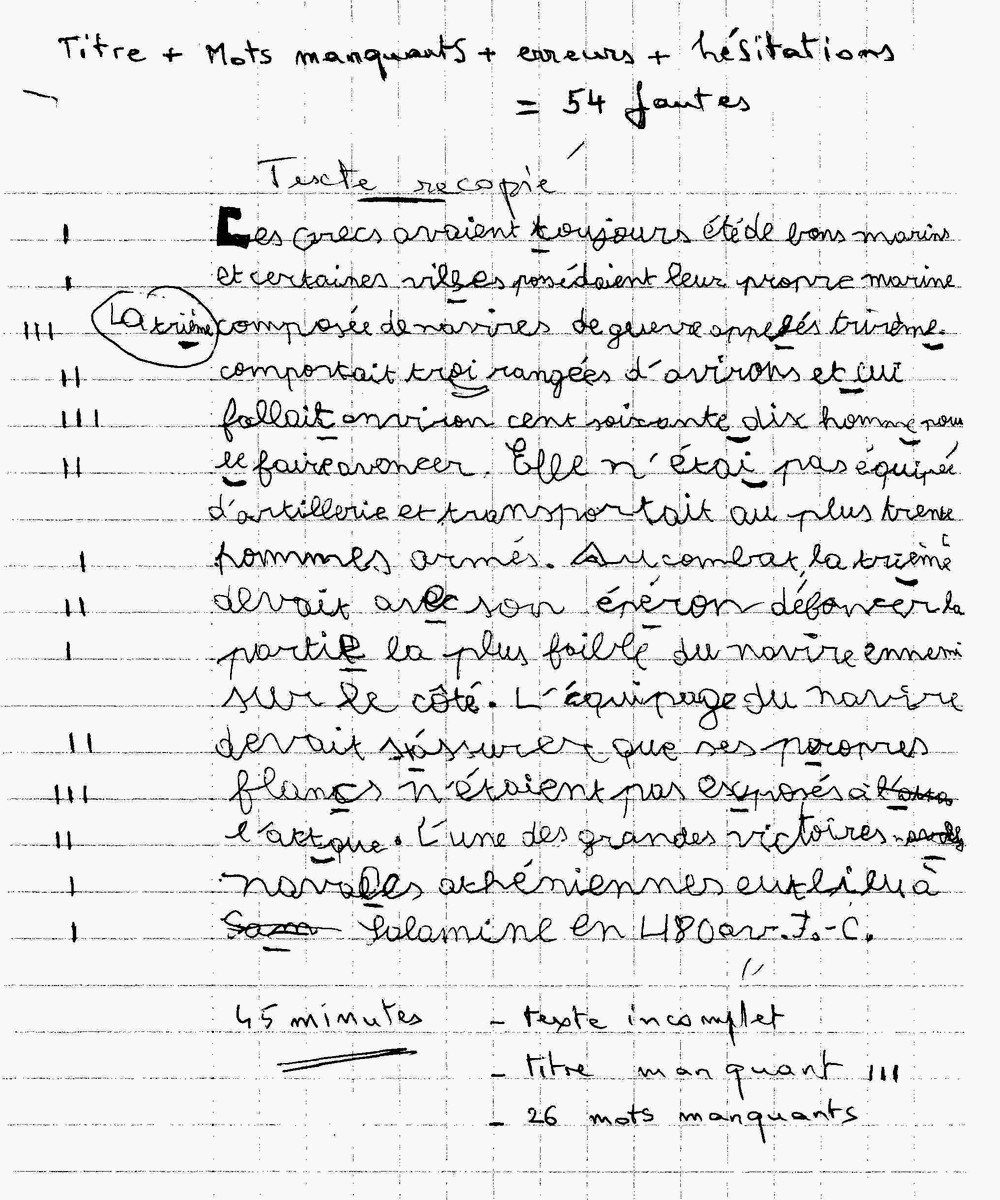 Titre + Mots manquants + erreurs + hésitations
= 54 fautes
Texte recopié
I Les Grecs avaient toujours été de bons marins
I et certaines villes posédaient leur propre marine
III La trième composée de navires de guerre appelés trirème.
II comportait troi rangées d'avirons et cui
III fallait environ cent soixante dix homme pour
II le faire avancer. Elle n'étai pas équipée
d'artillerie et transportait au plus trente
I hommes armés. Au combat, la trième
II devait avec son éperon défoncer la
I partie la plus faible du navire ennemi
sur le côté. L'équipage du navire
II devait s'assurer que ses propres
III flancs n'étaient pas exposés à
II l'attque. L'une des grandes victoires
I navales athéniennes eut lieu à
I Sam Salamine en 480 av. J.-C.
45 minutes
- texte incomplet
- titre manquant III
- 26 mots manquants